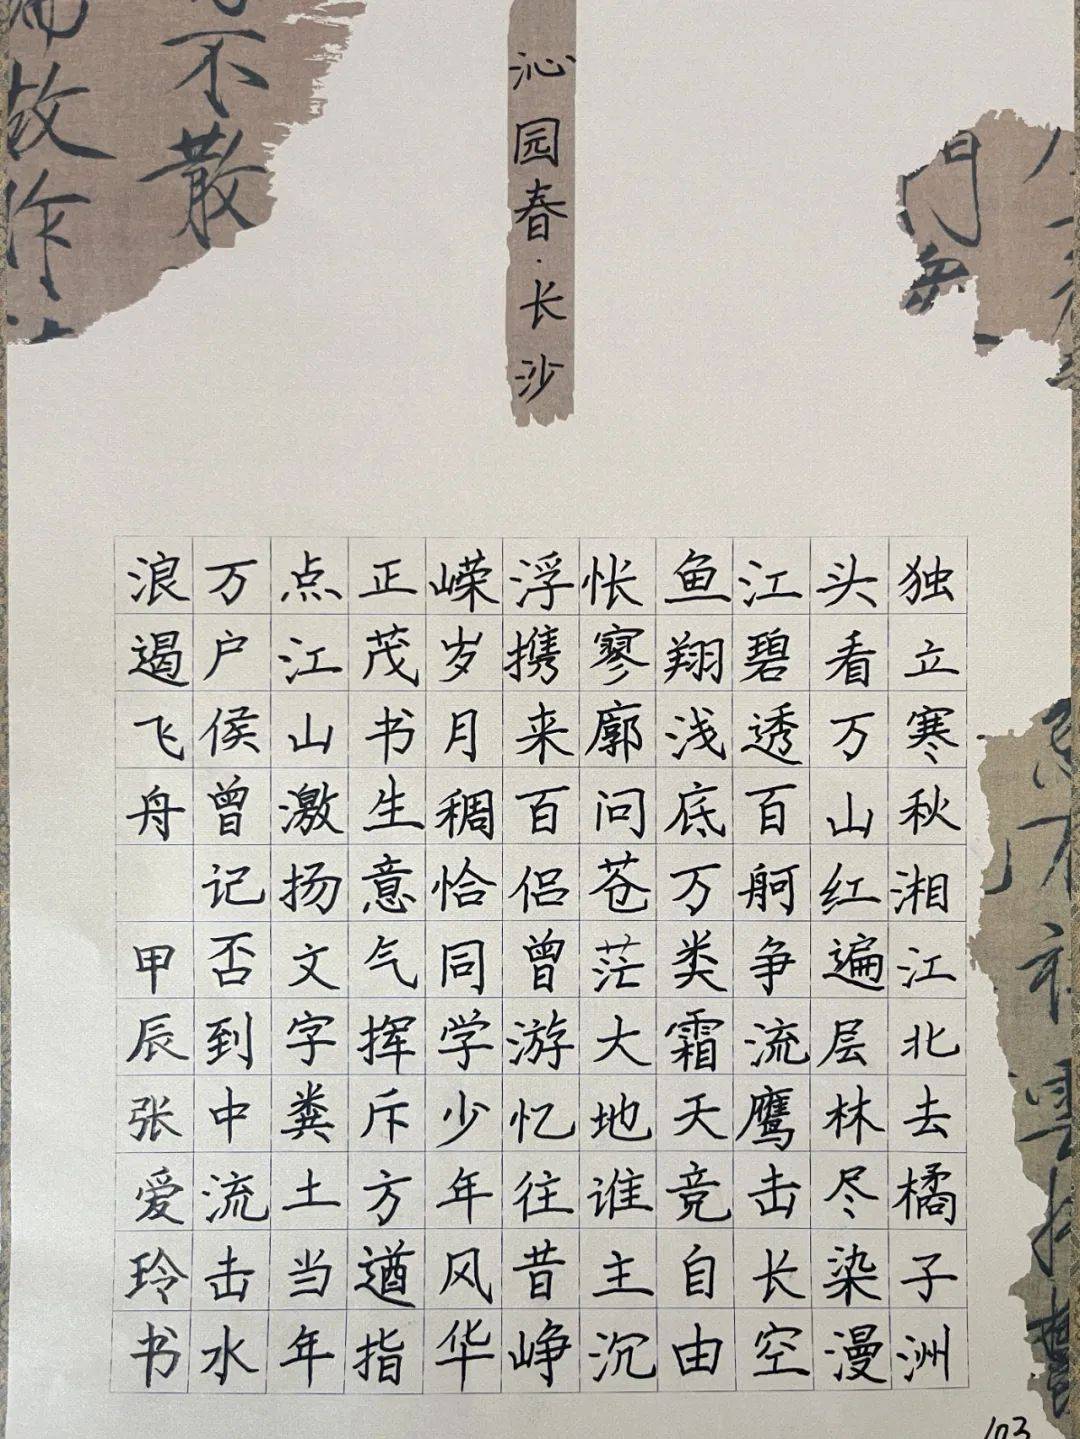 沁园春·长沙
独立寒秋湘江北去橘子洲
头看万山红遍层林尽染漫
江碧透百舸争流鹰击长空
鱼翔浅底万类霜天竞自由
怅寥廓问苍茫大地谁主沉
浮携来百侣曾游忆往昔峥
嵘岁月稠恰同学少年风华
正茂书生意气挥斥方遒指
点江山激扬文字粪土当年
万户侯曾记否到中流击水
浪遏飞舟 甲辰张爱玲书
不散
故作
103